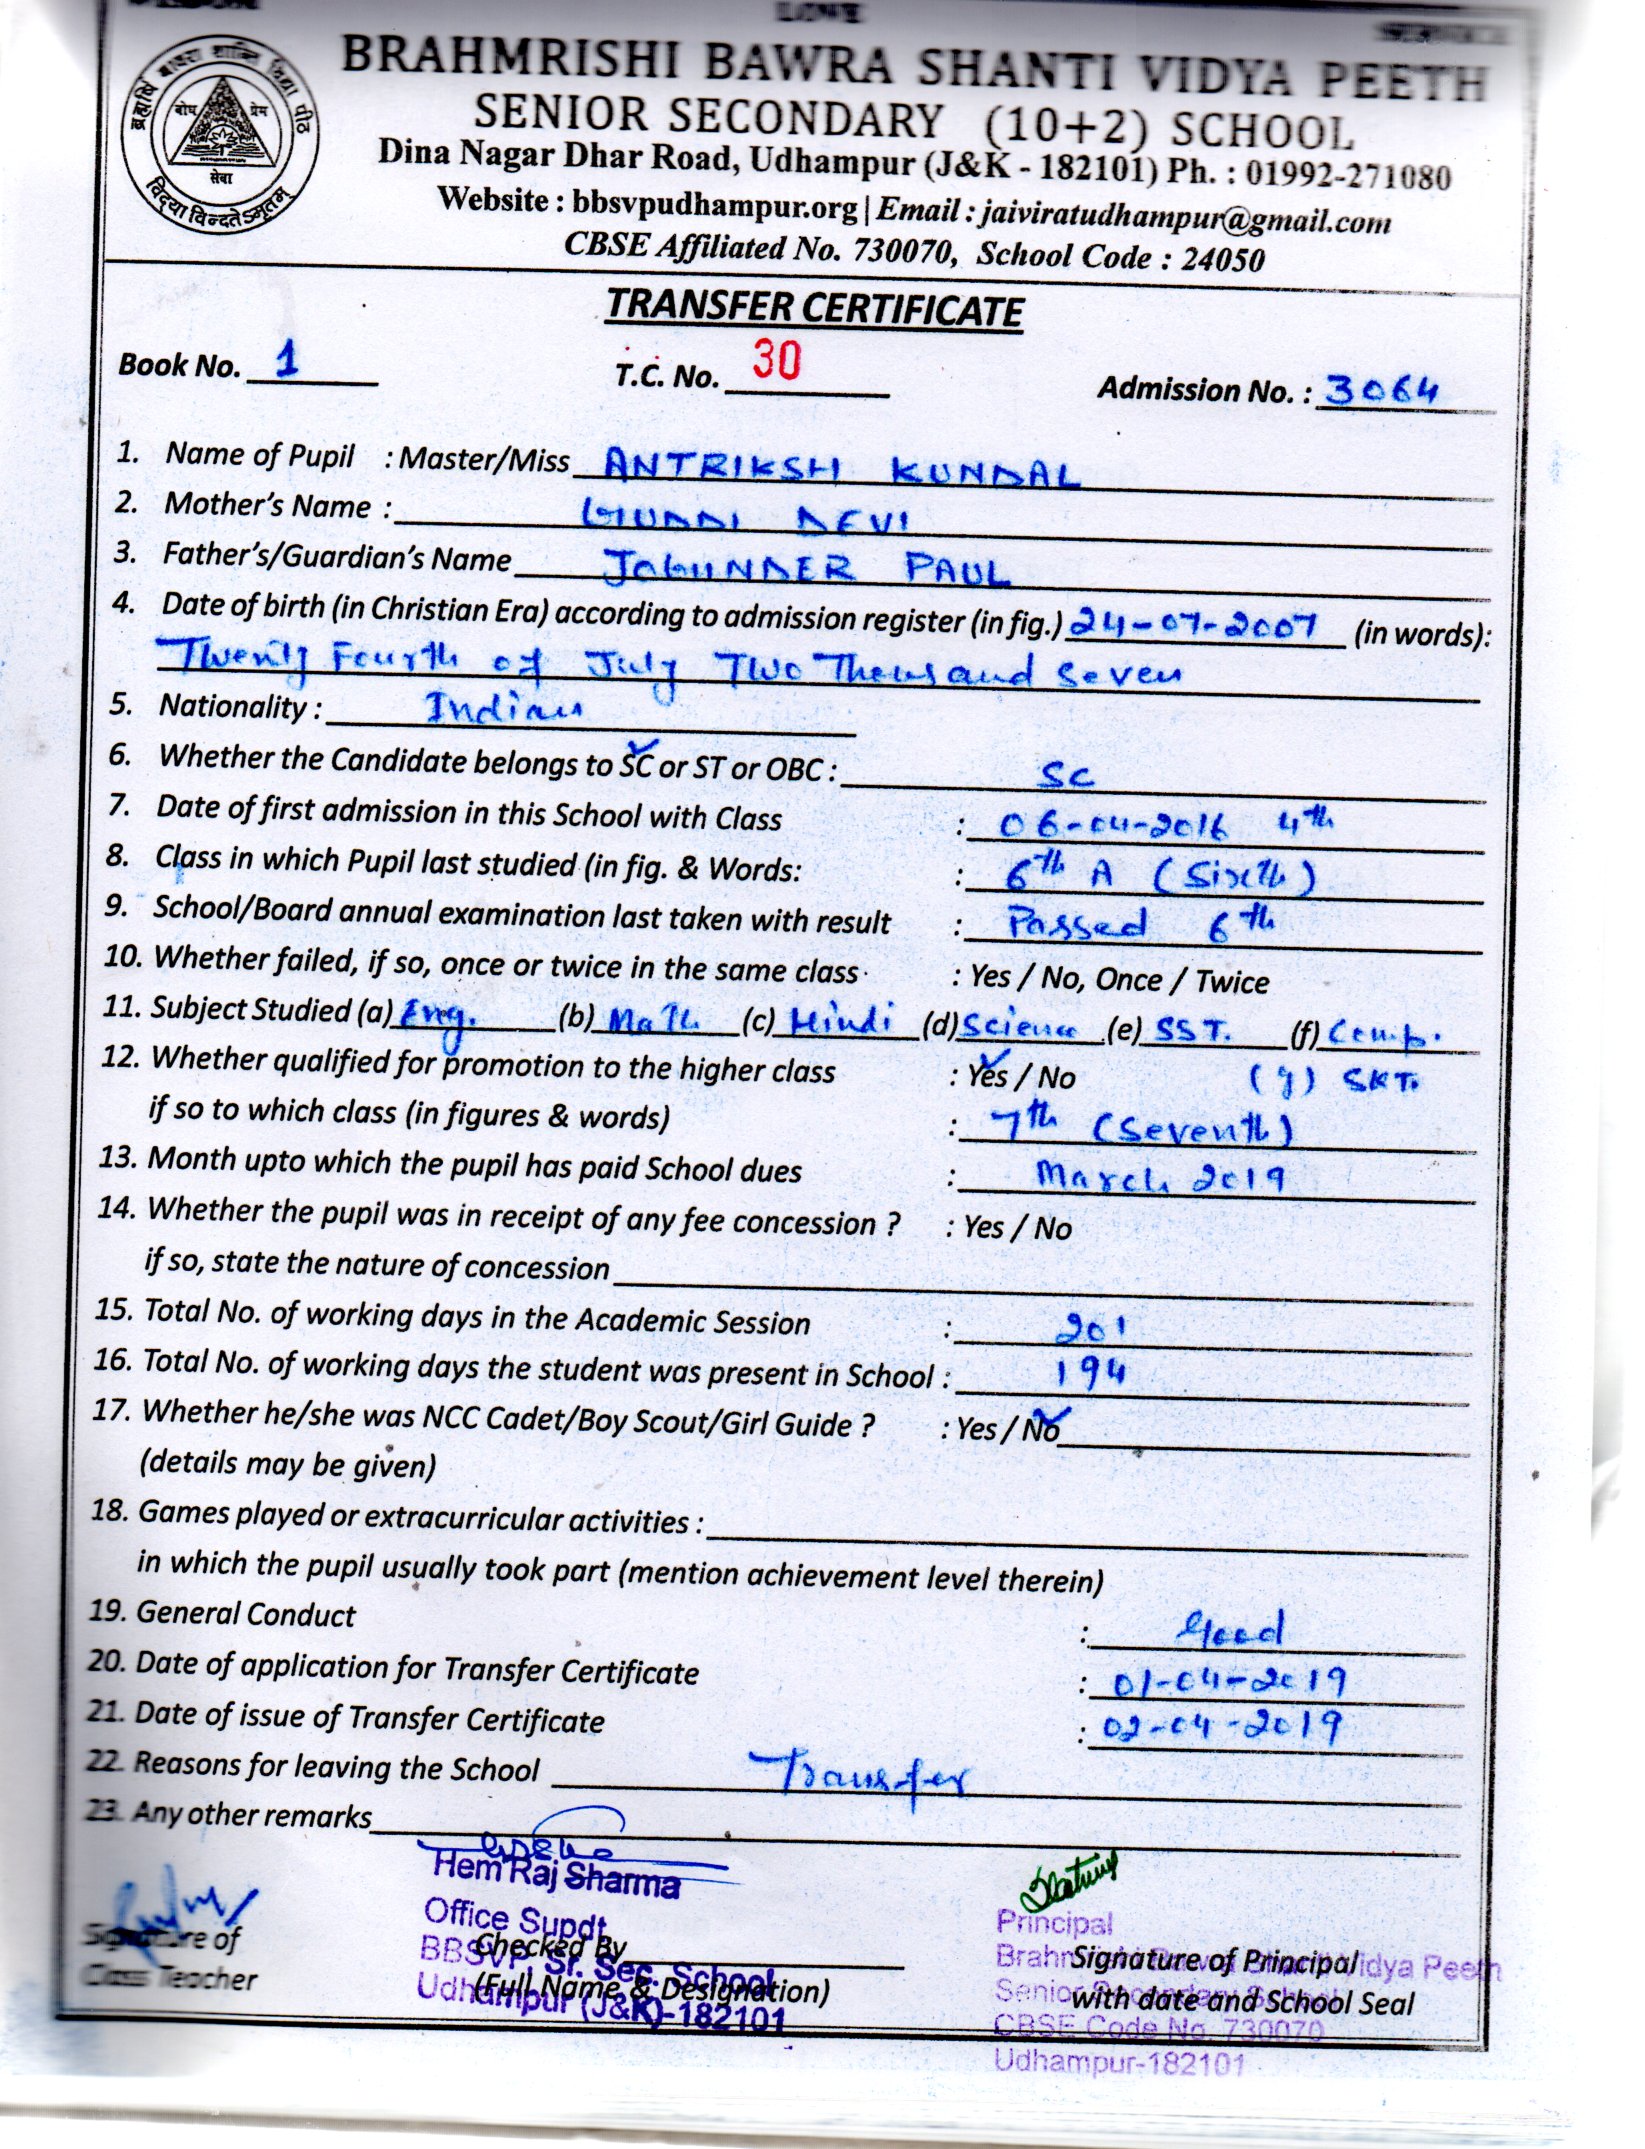 LOVE
BRAHMRISHI BAWRA SHANTI VIDYA PEETH
SENIOR SECONDARY (10+2) SCHOOL
Dina Nagar Dhar Road, Udhampur (J&K - 182101) Ph. : 01992-271080
Website : bbsvpudhampur.org | Email : jaiviratudhampur@gmail.com
CBSE Affiliated No. 730070, School Code : 24050
ब्रह्मर्षि बावरा शान्ति विद्या पीठ
बोध प्रेम
सेवा
विद्या विन्दतेऽमृतम्
TRANSFER CERTIFICATE
Book No. 1 T.C. No. 30 Admission No. : 3064
1. Name of Pupil : Master/Miss ANTRIKSH KUNDAL
2. Mother's Name : GUDDI DEVI
3. Father's/Guardian's Name JOGINDER PAUL
4. Date of birth (in Christian Era) according to admission register (in fig.) 24-07-2007 (in words):
Twenty Fourth of July Two Thousand Seven
5. Nationality : Indian
6. Whether the Candidate belongs to SC or ST or OBC : SC
7. Date of first admission in this School with Class : 06-04-2016 4th
8. Class in which Pupil last studied (in fig. & Words: : 6th A (Sixth)
9. School/Board annual examination last taken with result : Passed 6th
10. Whether failed, if so, once or twice in the same class : Yes / No, Once / Twice
11. Subject Studied (a) Eng. (b) Math (c) Hindi (d) Science (e) SST. (f) Comp.
12. Whether qualified for promotion to the higher class : Yes / No (g) SKT.
if so to which class (in figures & words) : 7th (Seventh)
13. Month upto which the pupil has paid School dues : March 2019
14. Whether the pupil was in receipt of any fee concession ? : Yes / No
if so, state the nature of concession
15. Total No. of working days in the Academic Session : 201
16. Total No. of working days the student was present in School : 194
17. Whether he/she was NCC Cadet/Boy Scout/Girl Guide ? : Yes / No
(details may be given)
18. Games played or extracurricular activities :
in which the pupil usually took part (mention achievement level therein)
19. General Conduct : Good
20. Date of application for Transfer Certificate : 01-04-2019
21. Date of issue of Transfer Certificate : 02-04-2019
22. Reasons for leaving the School Transfer
23. Any other remarks
Hem Raj Sharma
Office Supdt.
BBSVP, Sr. Sec. School
Udhampur (J&K)-182101
Signature of
Class Teacher
Checked By
(Full Name & Designation)
Principal
Brahmrishi Bawra Shanti Vidya Peeth
Senior Secondary School
CBSE Code No. 730070
Udhampur-182101
Signature of Principal
with date and School Seal